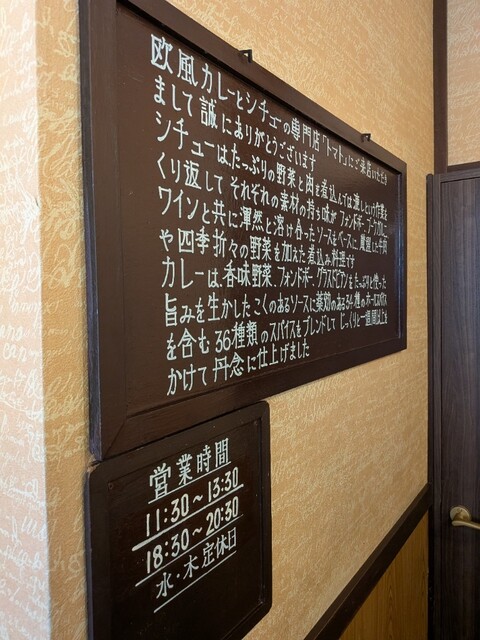 欧風カレーとシチューの専門店「トマト」にご来店いただき
まして誠にありがとうございます
シチューはたっぷりの野菜と肉を煮込んでは漉しという作業を
くり返してそれぞれの素材の持ち味がフォンドボー、ブーケガルニ
ワインと共に渾然と溶け合ったソースをベースに、厳選した牛肉
や四季折々の野菜を加えた煮込み料理です
カレーは、香味野菜、フォンドボー、グラスドビアンをたっぷりと使った
旨みを生かしたこくのあるソースに薬効のある34種のホールスパイス
を含む36種類のスパイスをブレンドしてじっくりと一週間以上も
かけて丹念に仕上げました
営業時間
11:30～13:30
18:30～20:30
水・木定休日